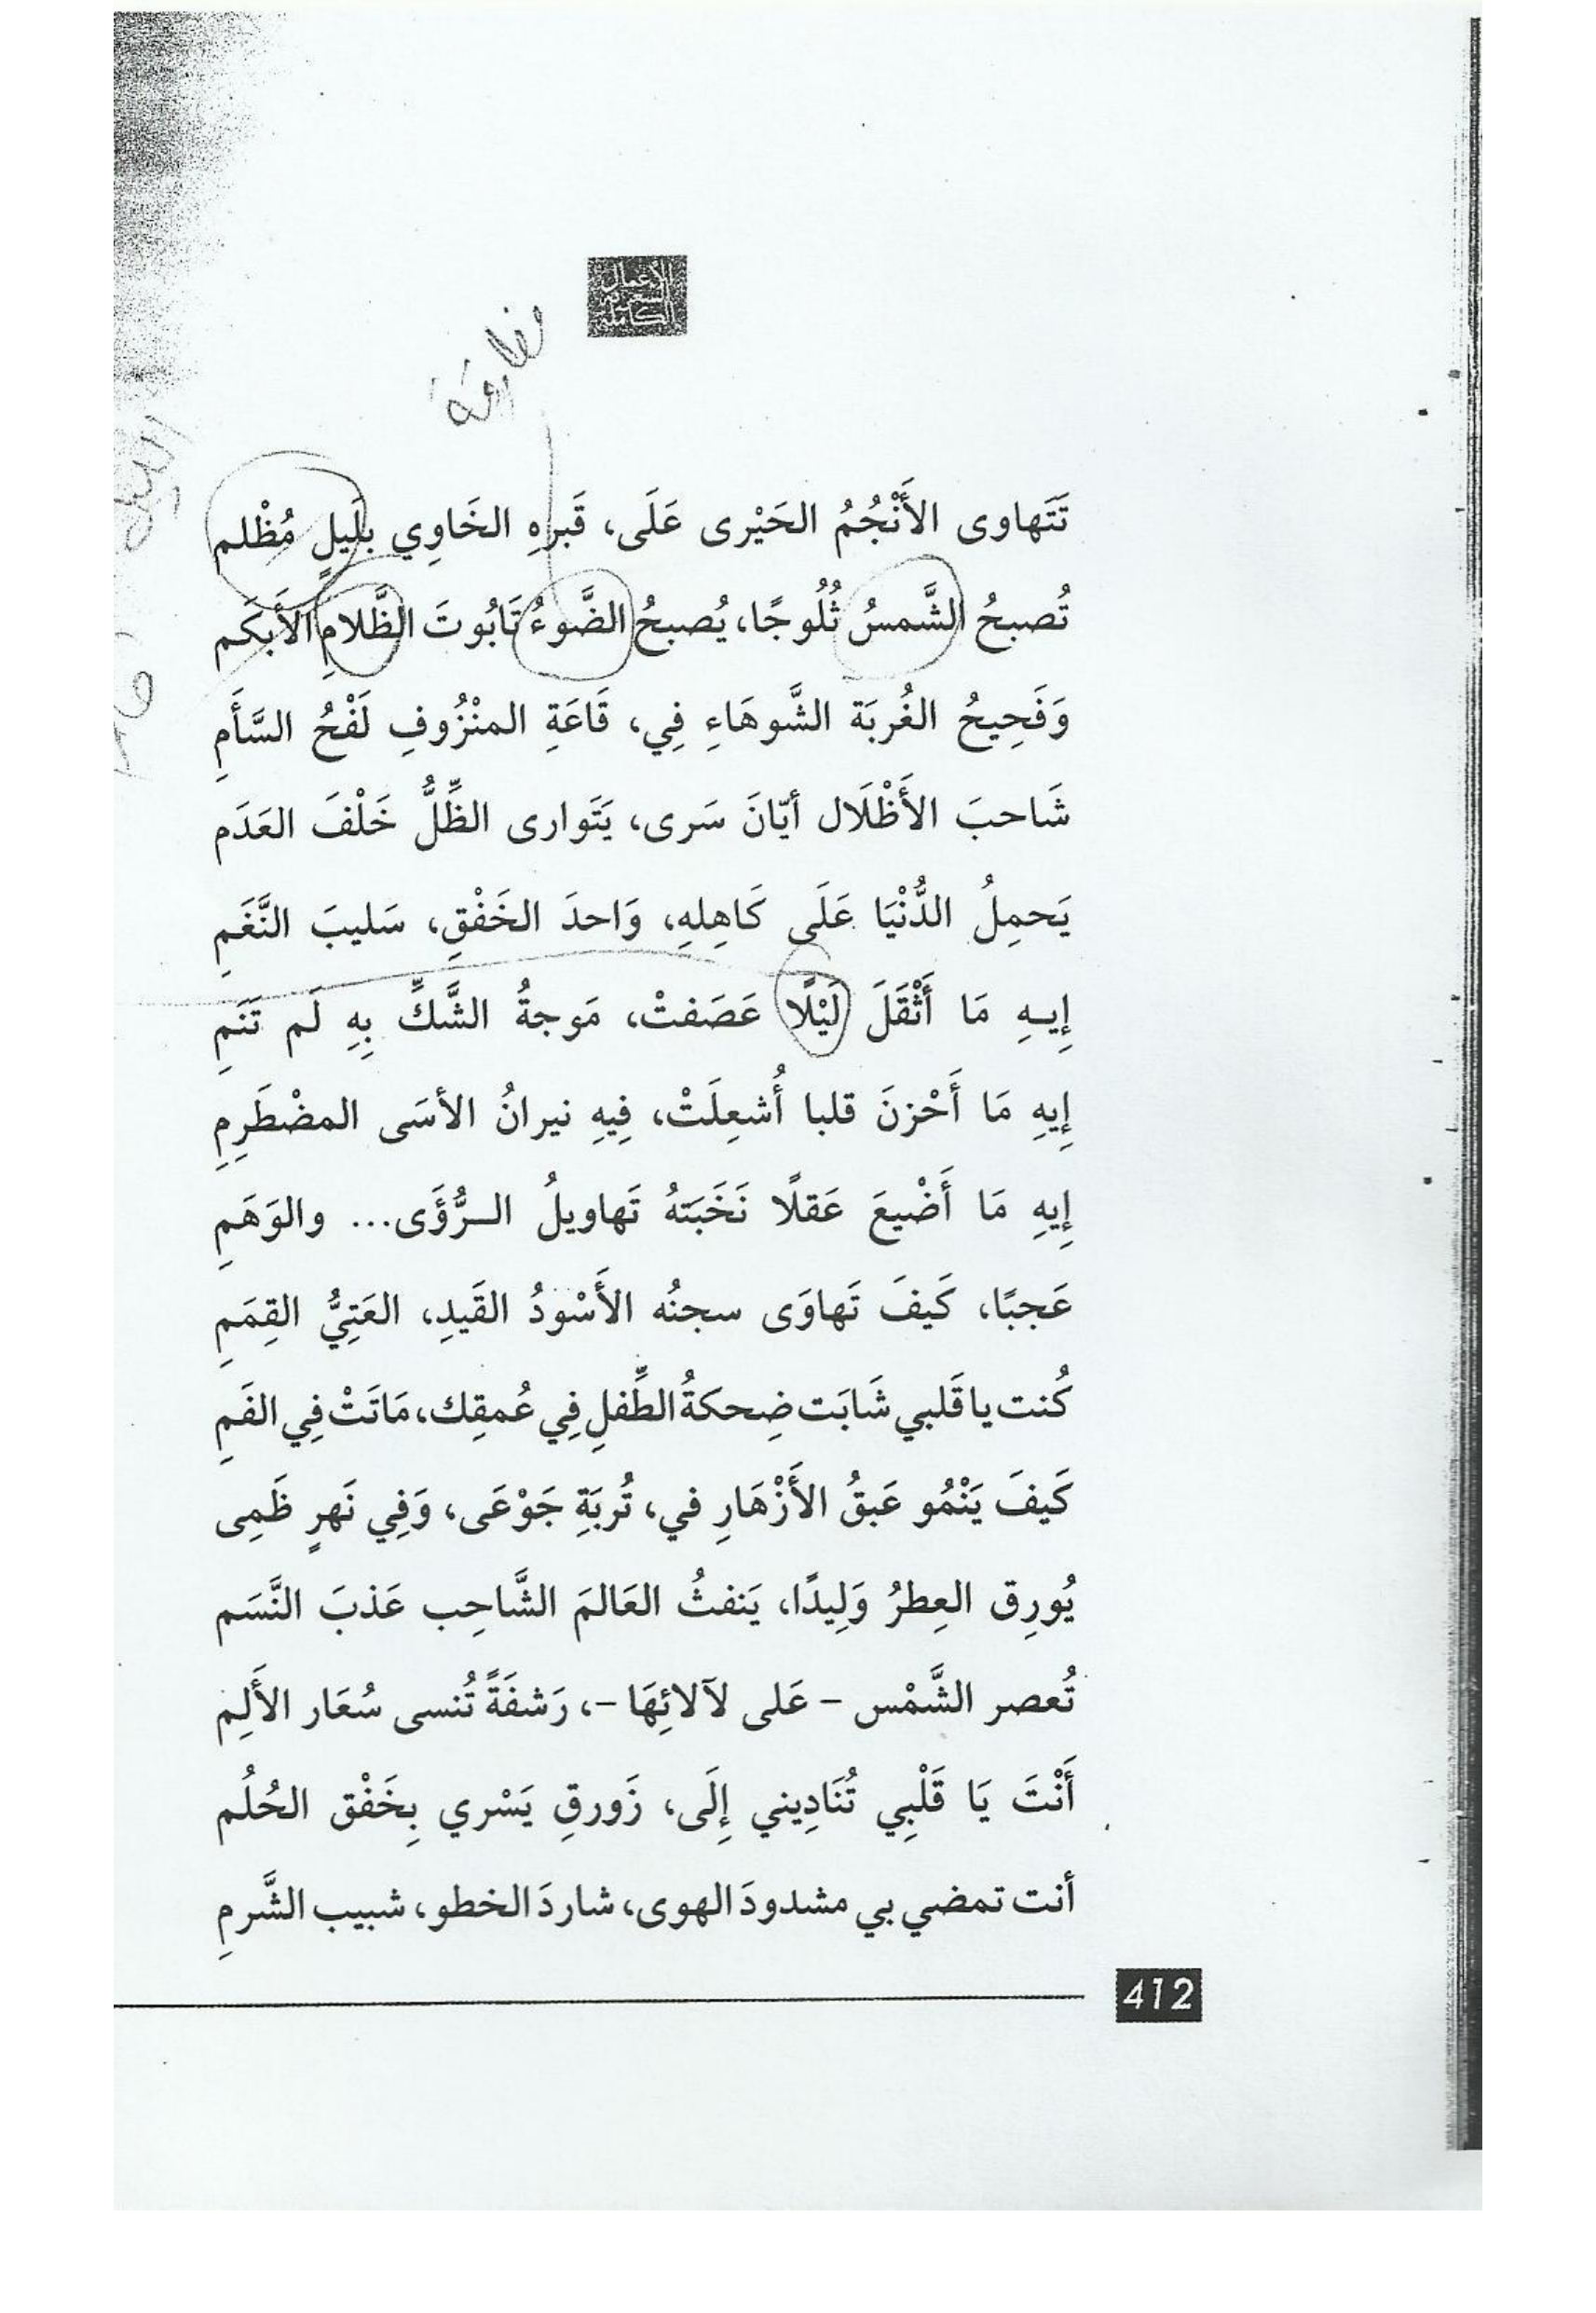 الأعمال
الشعرية
الكاملة
مفارقة
تَتَهاوى الأَنْجُمُ الحَيْرى عَلَى، قَبرهِ الخَاوِي بلَيلٍ مُظْلم
تُصبحُ الشَّمسُ ثُلُوجًا، يُصبحُ الضَّوءُ تَابُوتَ الظَّلامِ الأَبكَم
وَفَحِيحُ الغُربَة الشَّوهَاءِ فِي، قَاعَةِ المنْزُوفِ لَفْحُ السَّأَمِ
شَاحبَ الأَظْلَال أيّانَ سَرى، يَتَوارى الظِّلُّ خَلْفَ العَدَم
يَحمِلُ الدُّنْيَا عَلَى كَاهِلهِ، وَاحدَ الخَفْقِ، سَليبَ النَّغَمِ
إِيـهِ مَا أَثْقَلَ لَيْلًا عَصَفتْ، مَوجةُ الشَّكِّ بِهِ لَم تَنَمِ
إِيهِ مَا أَحْزنَ قلبا أُشعِلَتْ، فِيهِ نيرانُ الأسَى المضْطَرِمِ
إِيهِ مَا أَضْيعَ عَقلًا نَخَبَتهُ تَهاويلُ الـرُّؤَى... والوَهَمِ
عَجبًا، كَيفَ تَهاوَى سجنُه الأَسْودُ القَيدِ، العَتِيُّ القِمَمِ
كُنت يا قَلبي شَابَت ضِحكةُ الطِّفلِ فِي عُمقِك، مَاتَتْ فِي الفَمِ
كَيفَ يَنْمُو عَبقُ الأَزْهَارِ في، تُربَةِ جَوْعَى، وَفِي نَهرٍ ظَمِى
يُورِق العِطرُ وَلِيدًا، يَنفثُ العَالمَ الشَّاحِب عَذبَ النَّسَم
تُعصر الشَّمْس - عَلى لآلائِهَا -، رَشفَةً تُنسى سُعَار الأَلِم
أَنْتَ يَا قَلْبِي تُنَادِيني إِلَى، زَورقِ يَسْري بِخَفْق الحُلُم
أنت تمضي بي مشدودَ الهوى، شاردَ الخطو، شبيب الشَّرمِ
412